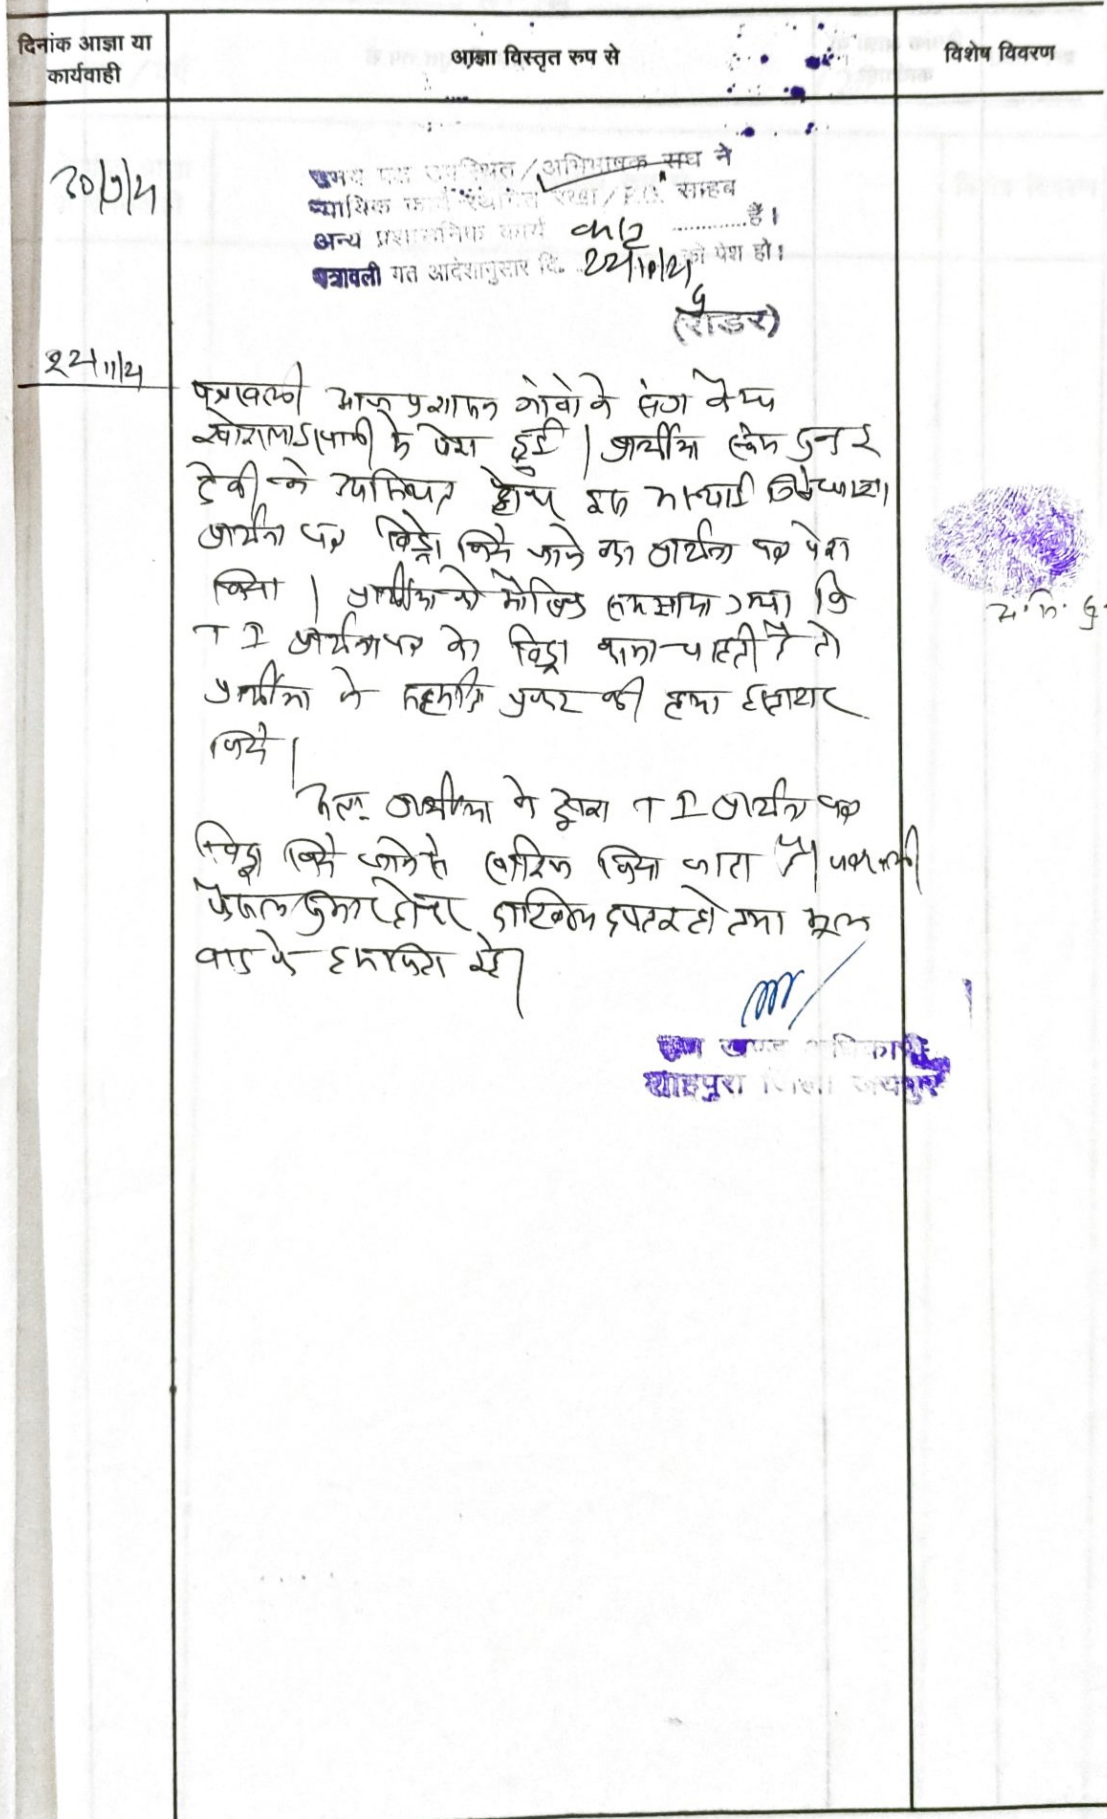 दिनांक आज्ञा या
कार्यवाही
आज्ञा विस्तृत रूप से
विशेष विवरण
उपस्थित / अभिभाषक संघ ने
न्यायिक कार्य स्थगित रखा / P.O. साहब
अन्य प्रशासनिक कार्य है।
पत्रावली गत आदेशानुसार दि. को पेश हो।
(रीडर)
22/11/21
पत्रावली आज प्रशासन गांवो के संग कैम्प
के पेश हुई। प्रार्थीया
देवी ने उपस्थित होकर
प्रार्थना पत्र विड्रो किये जाने का प्रार्थना पत्र पेश
किया। प्रार्थीया को मौखिक समझाया गया कि
T I प्रार्थनापत्र को विड्रा करना चाहती है तो
प्रार्थीया ने सहमति प्रकट की तथा हस्ताक्षर
किये।
अतः प्रार्थीया के द्वारा T I प्रार्थना पत्र
विड्रा किये जाने से खारिज किया जाता है। पत्रावली
फैसल शुमार होकर दाखिल दफ्तर हो तथा मूल
वाद के रहे।
उप खण्ड अधिकारी
शाहपुरा जिला जयपुर